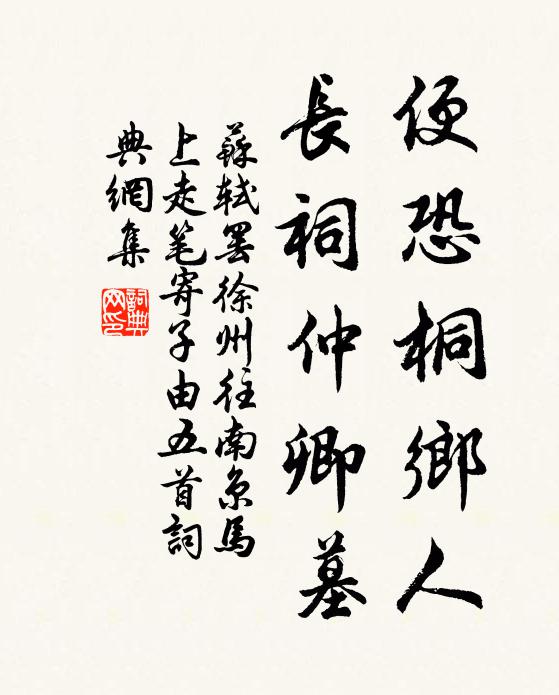 便恐桐鄉人
長祠仲卿墓
蘇軾罷徐州往南京馬
上走筆寄子由五首詞
典網集
詞典網印